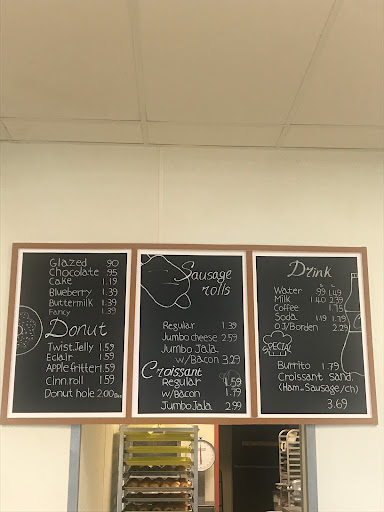 Glazed .90
Chocolate .95
Cake 1.19
Blueberry 1.39
Buttermilk 1.39
Fancy 1.39
Donut
Twist.Jelly 1.59
Eclair 1.59
Apple fritter 1.59
Cinn.roll 1.59
Donut hole 2.00
Sausage
rolls
Regular 1.39
Jumbo cheese 2.59
Jumbo Jala
w/Bacon 3.29
Croissant
Regular 1.59
w/Bacon 1.79
Jumbo Jala 2.99
Drink
Water .99 1.49
Milk 1.40 2.39
Coffee 1.75
Soda 1.19 1.79
O.J/Borden 2.29
SPECIAL
Burrito 1.79
Croissant Sand.
(Ham.Sausage/ch)
3.69